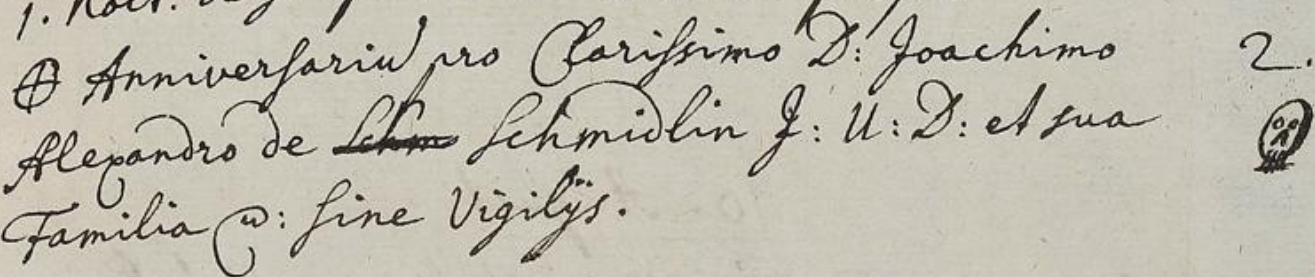 1. Noct.
Anniversariu pro Clarissimo D: Joachimo 2.
Alexandro de Schm Schmidlin J: U: D: et sua
Familia sine Vigilijs.